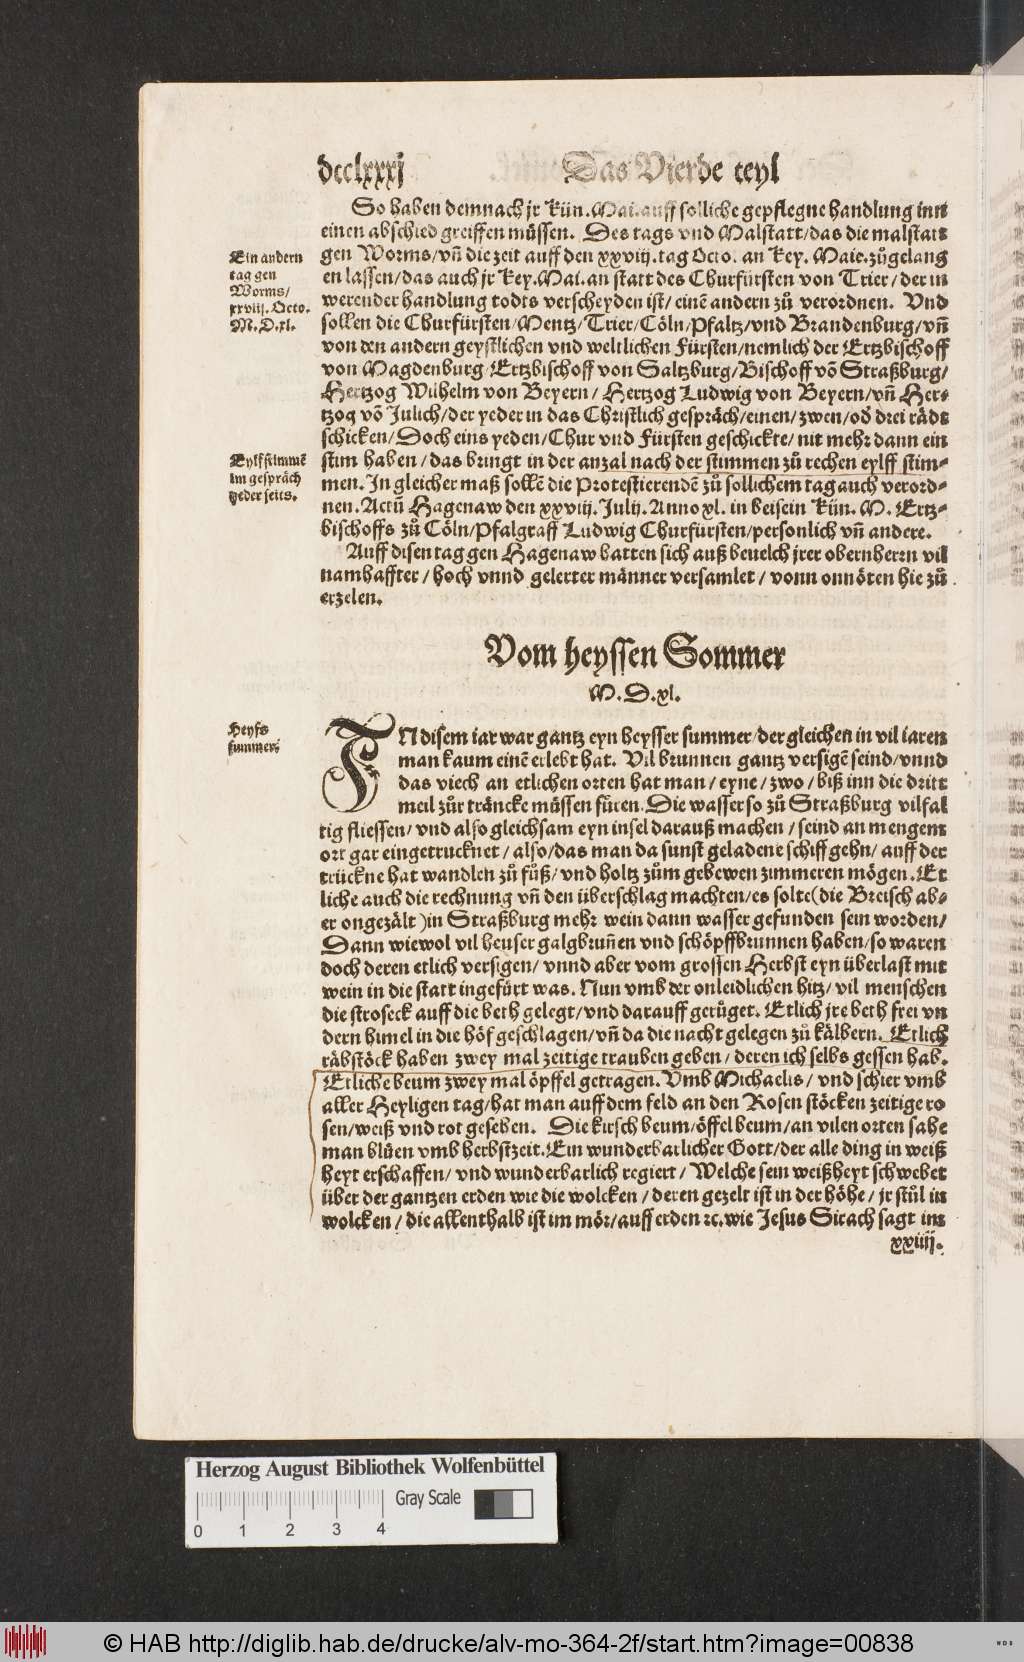 dcclxxxj Das Vierde teyl
So haben demnach jr Kün. Mai. auff solliche gepflegne handlung inn
einen abschied greiffen müssen. Des tags vnd Malstatt/das die malstatt
gen Worms/vñ die zeit auff den xxviij. tag Octo. an Key. Maie. zůgelang
en lassen/das auch jr Key. Mai. an statt des Churfürsten von Trier/der in
werender handlung todts verscheyden ist/einē andern zů verordnen. Vnd
sollen die Churfürsten/Mentz/Trier/Cöln/Pfaltz/vnd Brandenburg/vñ
von den andern geystlichen vnd weltlichen Fürsten/nemlich der Ertzbischoff
von Magdenburg/Ertzbischoff von Saltzburg/Bischoff vō Straßburg/
Hertzog Wilhelm von Beyern/Hertzog Ludwig von Beyern/vñ Her-
tzog vō Julich/der yeder in das Christlich gespräch/einen/zwen/od drei rädt
schicken/Doch eins yeden/Chur vnd Fürsten geschickte/nit mehr dann ein
stim haben/das bringt in der anzal nach der stimmen zů rechen eylff stim-
men. In gleicher maß sollē die Protestierendē zů sollichem tag auch verord-
nen. Actū Hagenaw den xxviij. Julij. Anno xl. in beisein Kün. M. Ertz-
bischoffs zů Cöln/Pfalgraff Ludwig Churfürsten/personlich vñ andere.
Auff disen tag gen Hagenaw hatten sich auß beuelch jrer obernherrn vil
namhaffter/hoch vnnd gelerter männer versamlet/vonn onnöten hie zů
erzelen.
Ein andern
tag gen
Worms/
xxviij. Octo.
M.D.xl.
Eylf stimmē
im gespräch
yeder seits.
Vom heyssen Sommer
M.D.xl.
Heyß
summer
IN disem iar war gantz eyn heysser summer/der gleichen in vil iaren
man kaum einē erlebt hat. Vil brunnen gantz versigē seind/vnnd
das viech an etlichen orten hat man/eyne/zwo/biß inn die dritt
meil zůr träncke müssen füren. Die wasser so zů Straßburg vilfal
tig fliessen/vnd also gleichsam eyn insel darauß machen/seind an mengem
ort gar eingetrucknet/also/das man da sunst geladene schiff gehn/auff der
trückne hat wandlen zů fůß/vnd holtz zům gebewen zimmeren mögen. Et
liche auch die rechnung vñ den überschlag machten/es solte(die Breisch ab-
er ongezält)in Straßburg mehr wein dann wasser gefunden sein worden/
Dann wiewol vil heuser galgbruñen vnd schöpffbrunnen haben/so waren
doch deren etlich versigen/vnnd aber vom grossen Herbst eyn überlast mit
wein in die statt ingefürt was. Nun vmb der onleidlichen hitz/vil menschen
die stroseck auff die beth gelegt/vnd darauff gerůget. Etlich jre beth frei vn
dern himel in die höf geschlagen/vñ da die nacht gelegen zů kälbern. Etlich
räbstöck haben zwey mal zeitige trauben geben/deren ich selbs gessen hab.
Etliche beum zwey mal öpffel getragen. Vmb Michaelis/vnd schier vmb
aller Heyligen tag/hat man auff dem feld an den Rosen stöcken zeitige ro
sen/weiß vnd rot gesehen. Die kirsch beum/öffel beum/an vilen orten sahe
man blüen vmb herbstzeit. Ein wunderbarlicher Gott/der alle ding in weiß
heyt erschaffen/vnd wunderbarlich regiert/Welche sein weißheyt schwebet
über der gantzen erden wie die wolcken/deren gezelt ist in der höhe/jr stůl in
wolcken/die allenthalb ist im mör/auff erden ꝛc. wie Jesus Sirach sagt im
xxiiij.
Herzog August Bibliothek Wolfenbüttel
Gray Scale
0 1 2 3 4
© HAB http://diglib.hab.de/drucke/alv-mo-364-2f/start.htm?image=00838